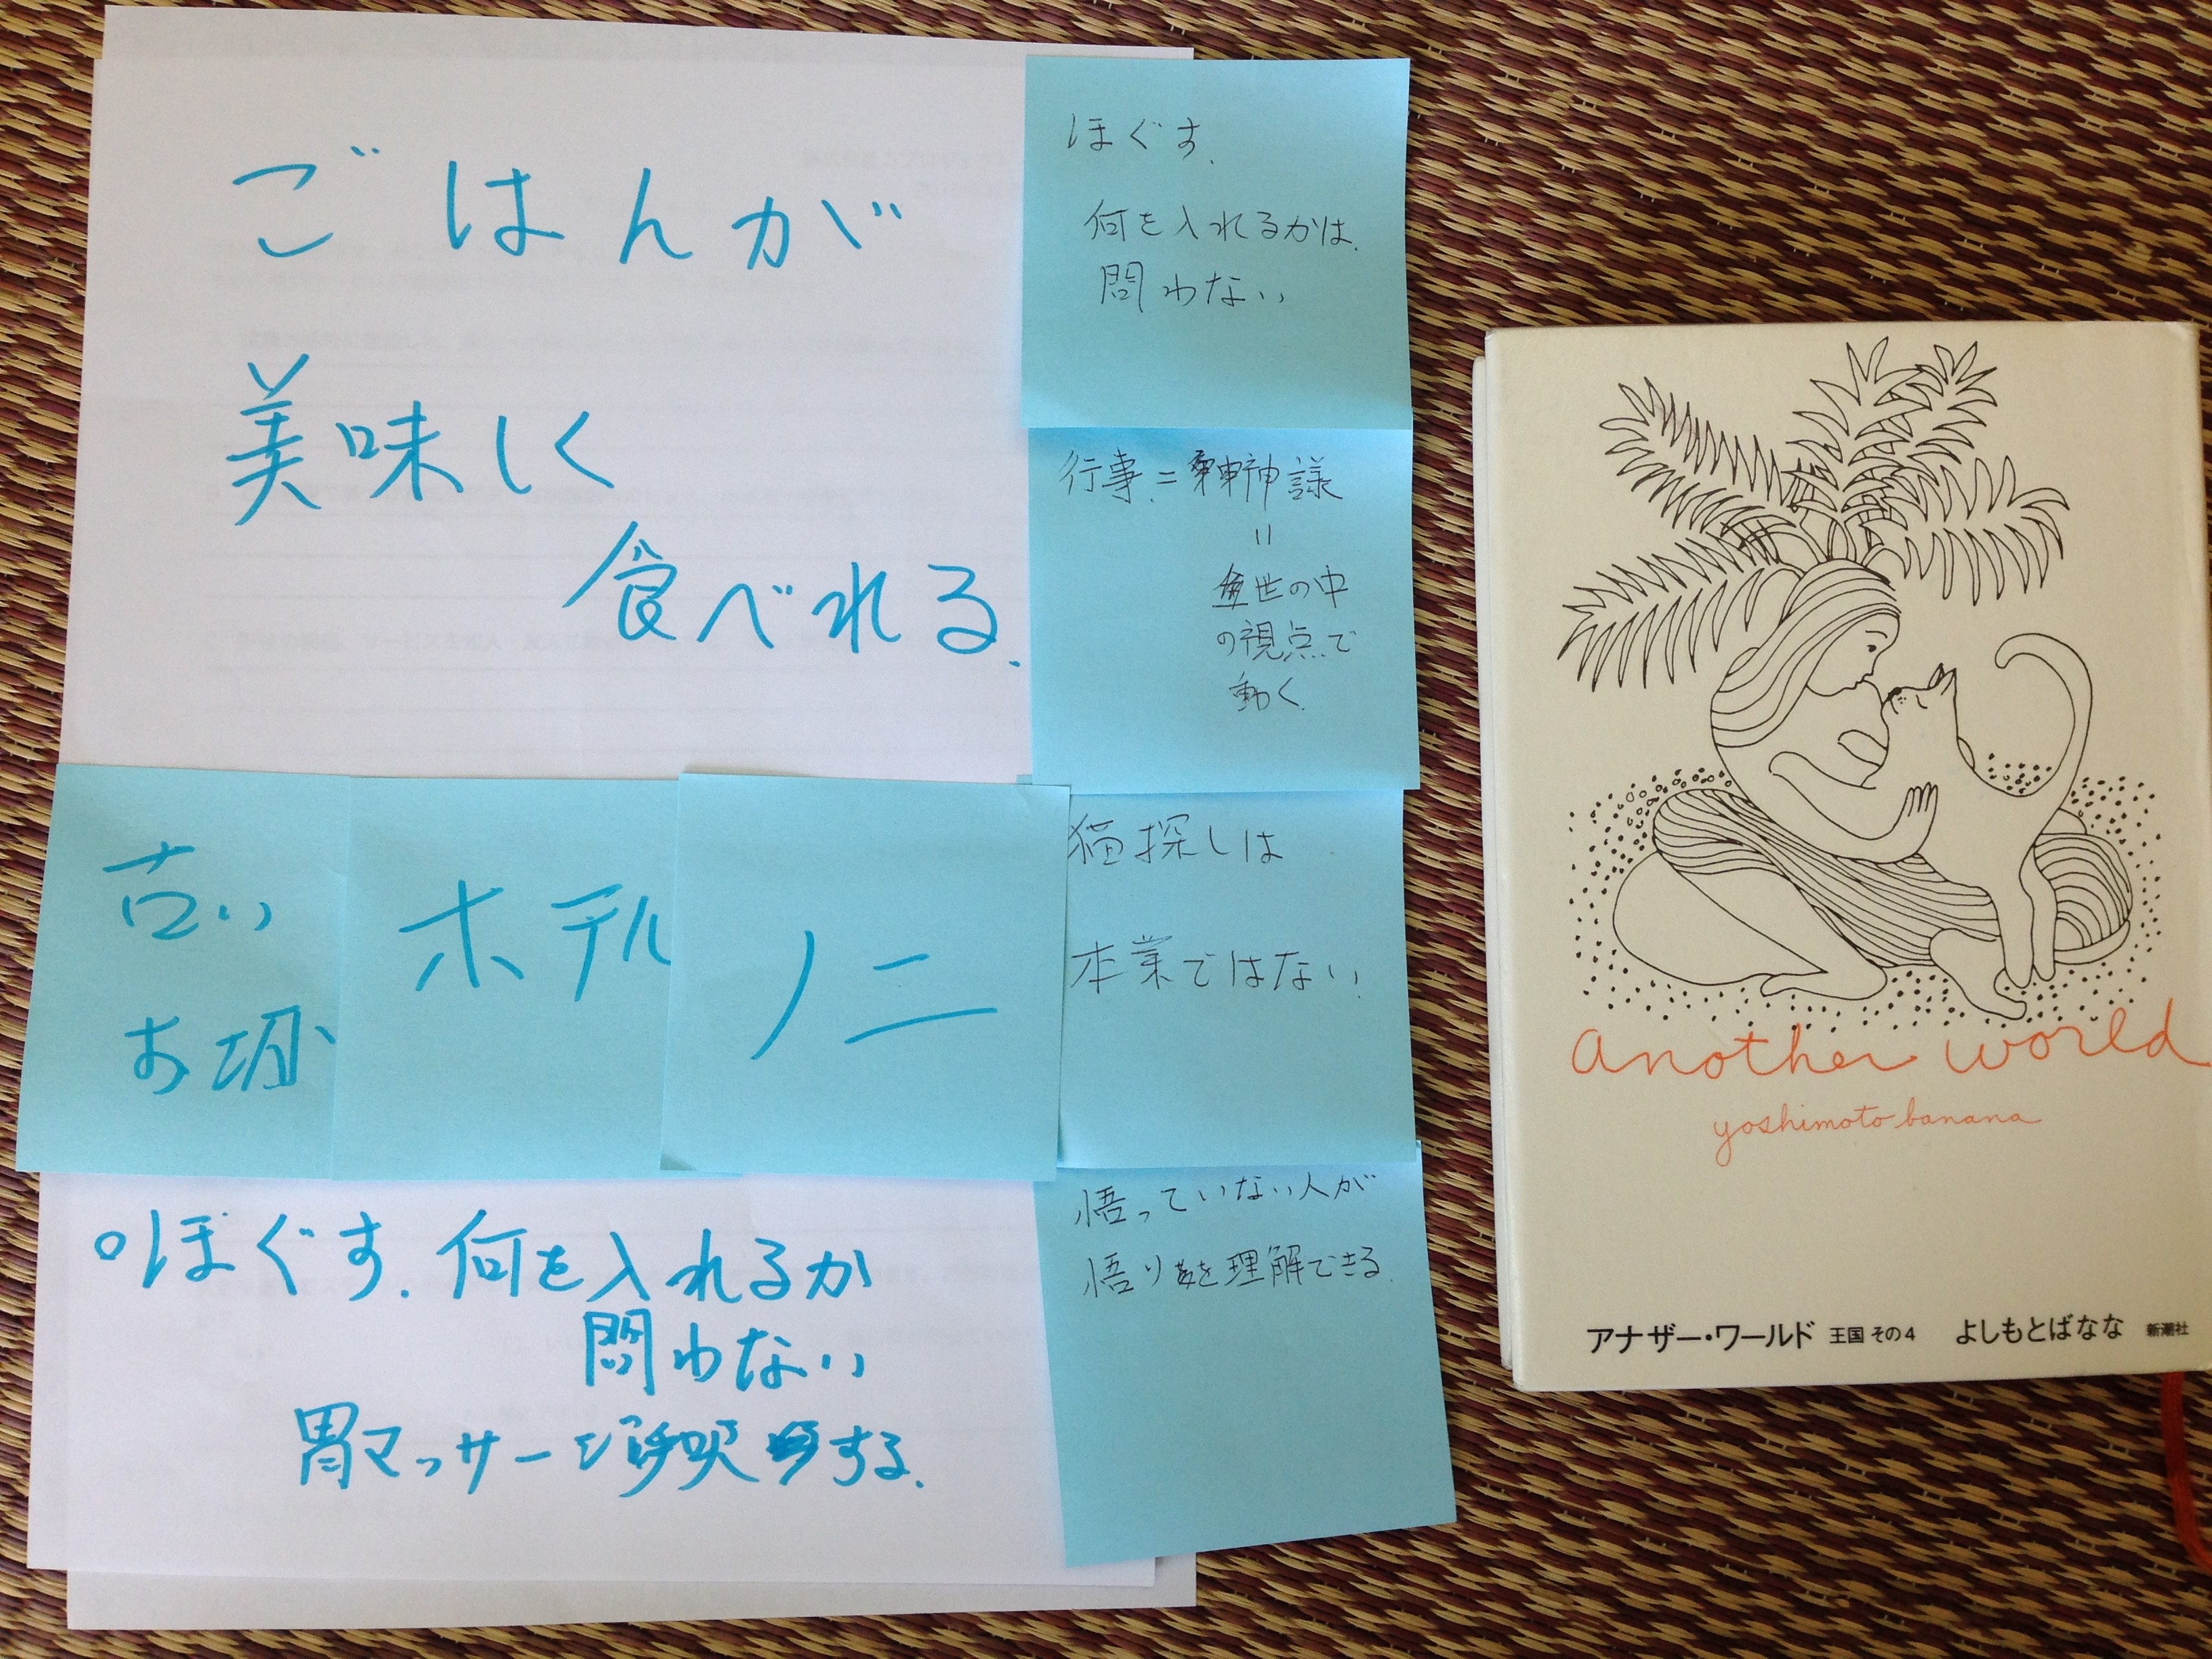 ごはんが
美味しく
食べれる.
ほぐす.
何を入れるかは.
問わない
行事.=神議
=
世の中
の視点で
動く.
古い
お城
ホテル
ノニ
猫探しは
本業ではない.
悟っていない人が
悟りを理解できる.
○ほぐす.何を入れるか
問わない
胃マッサージ呼吸する.
another world
yoshimoto banana
アナザー・ワールド 王国 その4 よしもとばなな 新潮社